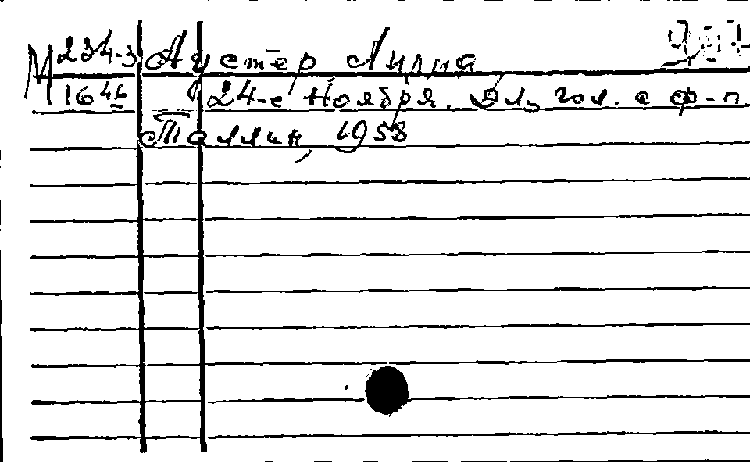 М 234-3 Аустер Лидия
1646 24-е Ноября. Для гол. с ф-п.
Таллин, 1958